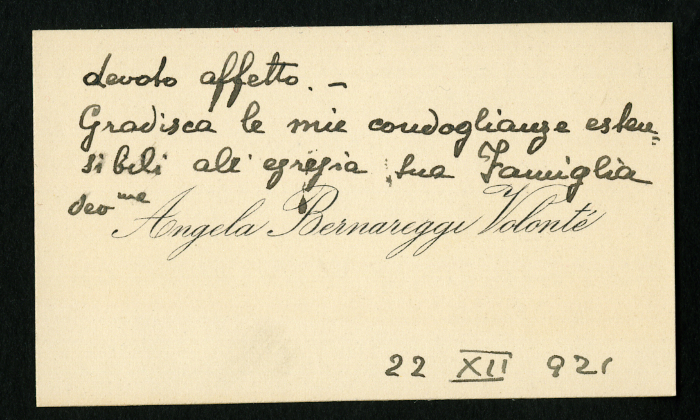 devoto affetto. –
Gradisca le mie condoglianze esten-
sibili all' egregia sua Famiglia
dev ma
Angela Bernareggi Volonté
22 XII 921